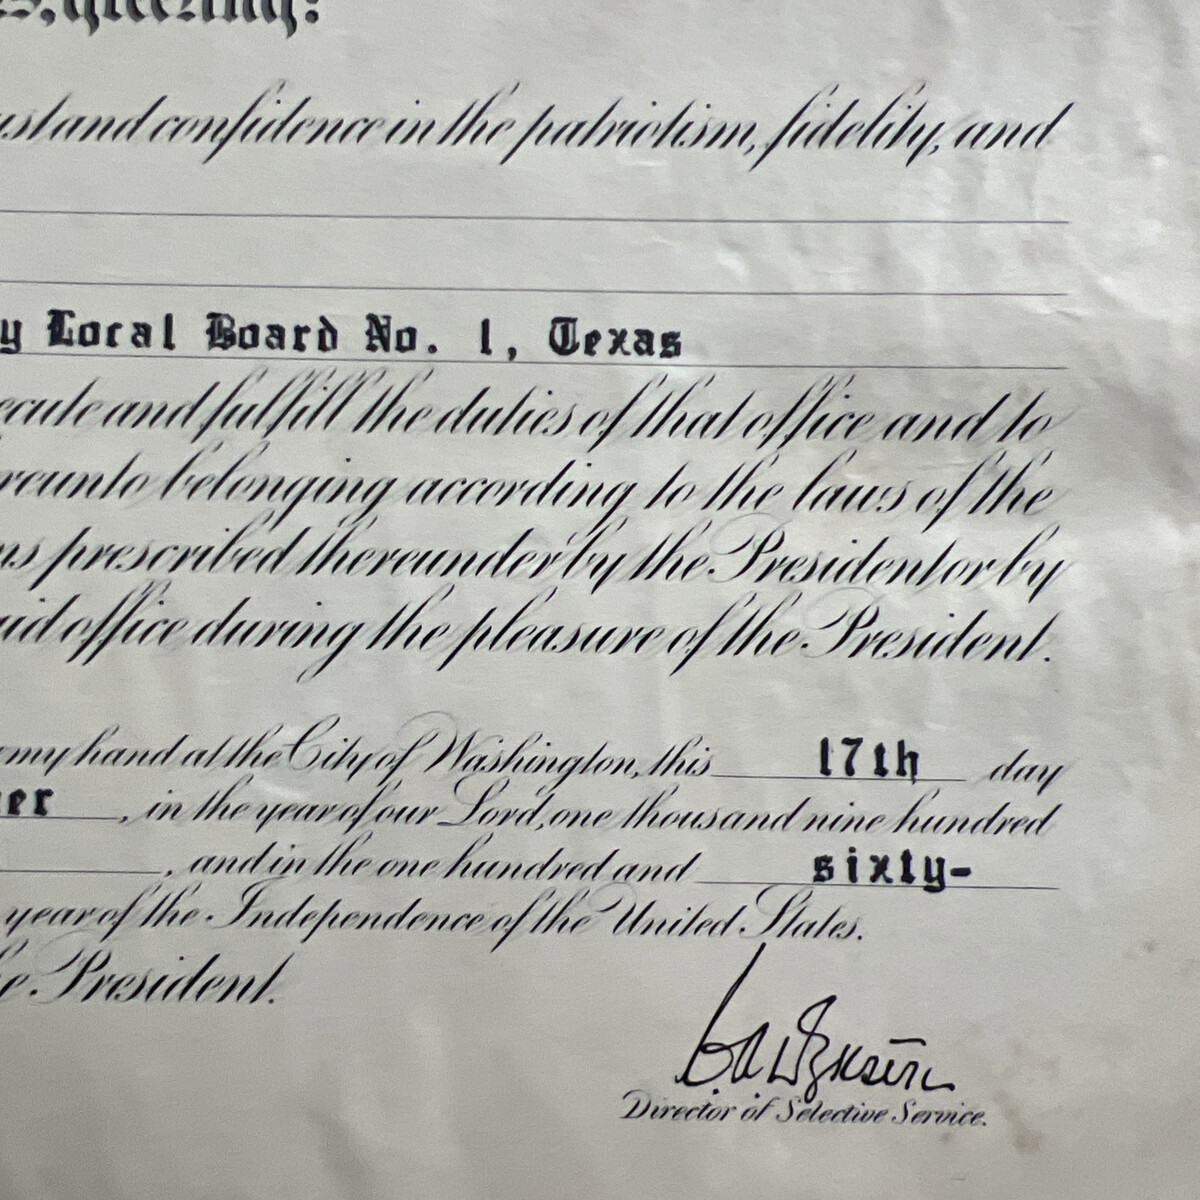 greeting:
and confidence in the patriotism, fidelity, and
y Local Board No. 1, Texas
and fulfill the duties of that office and to
belonging according to the laws of the
prescribed thereunder by the President or by
office during the pleasure of the President.
my hand at the City of Washington, this 17th day
, in the year of our Lord, one thousand nine hundred
, and in the one hundred and sixty-
year of the Independence of the United States.
President.
Director of Selective Service.